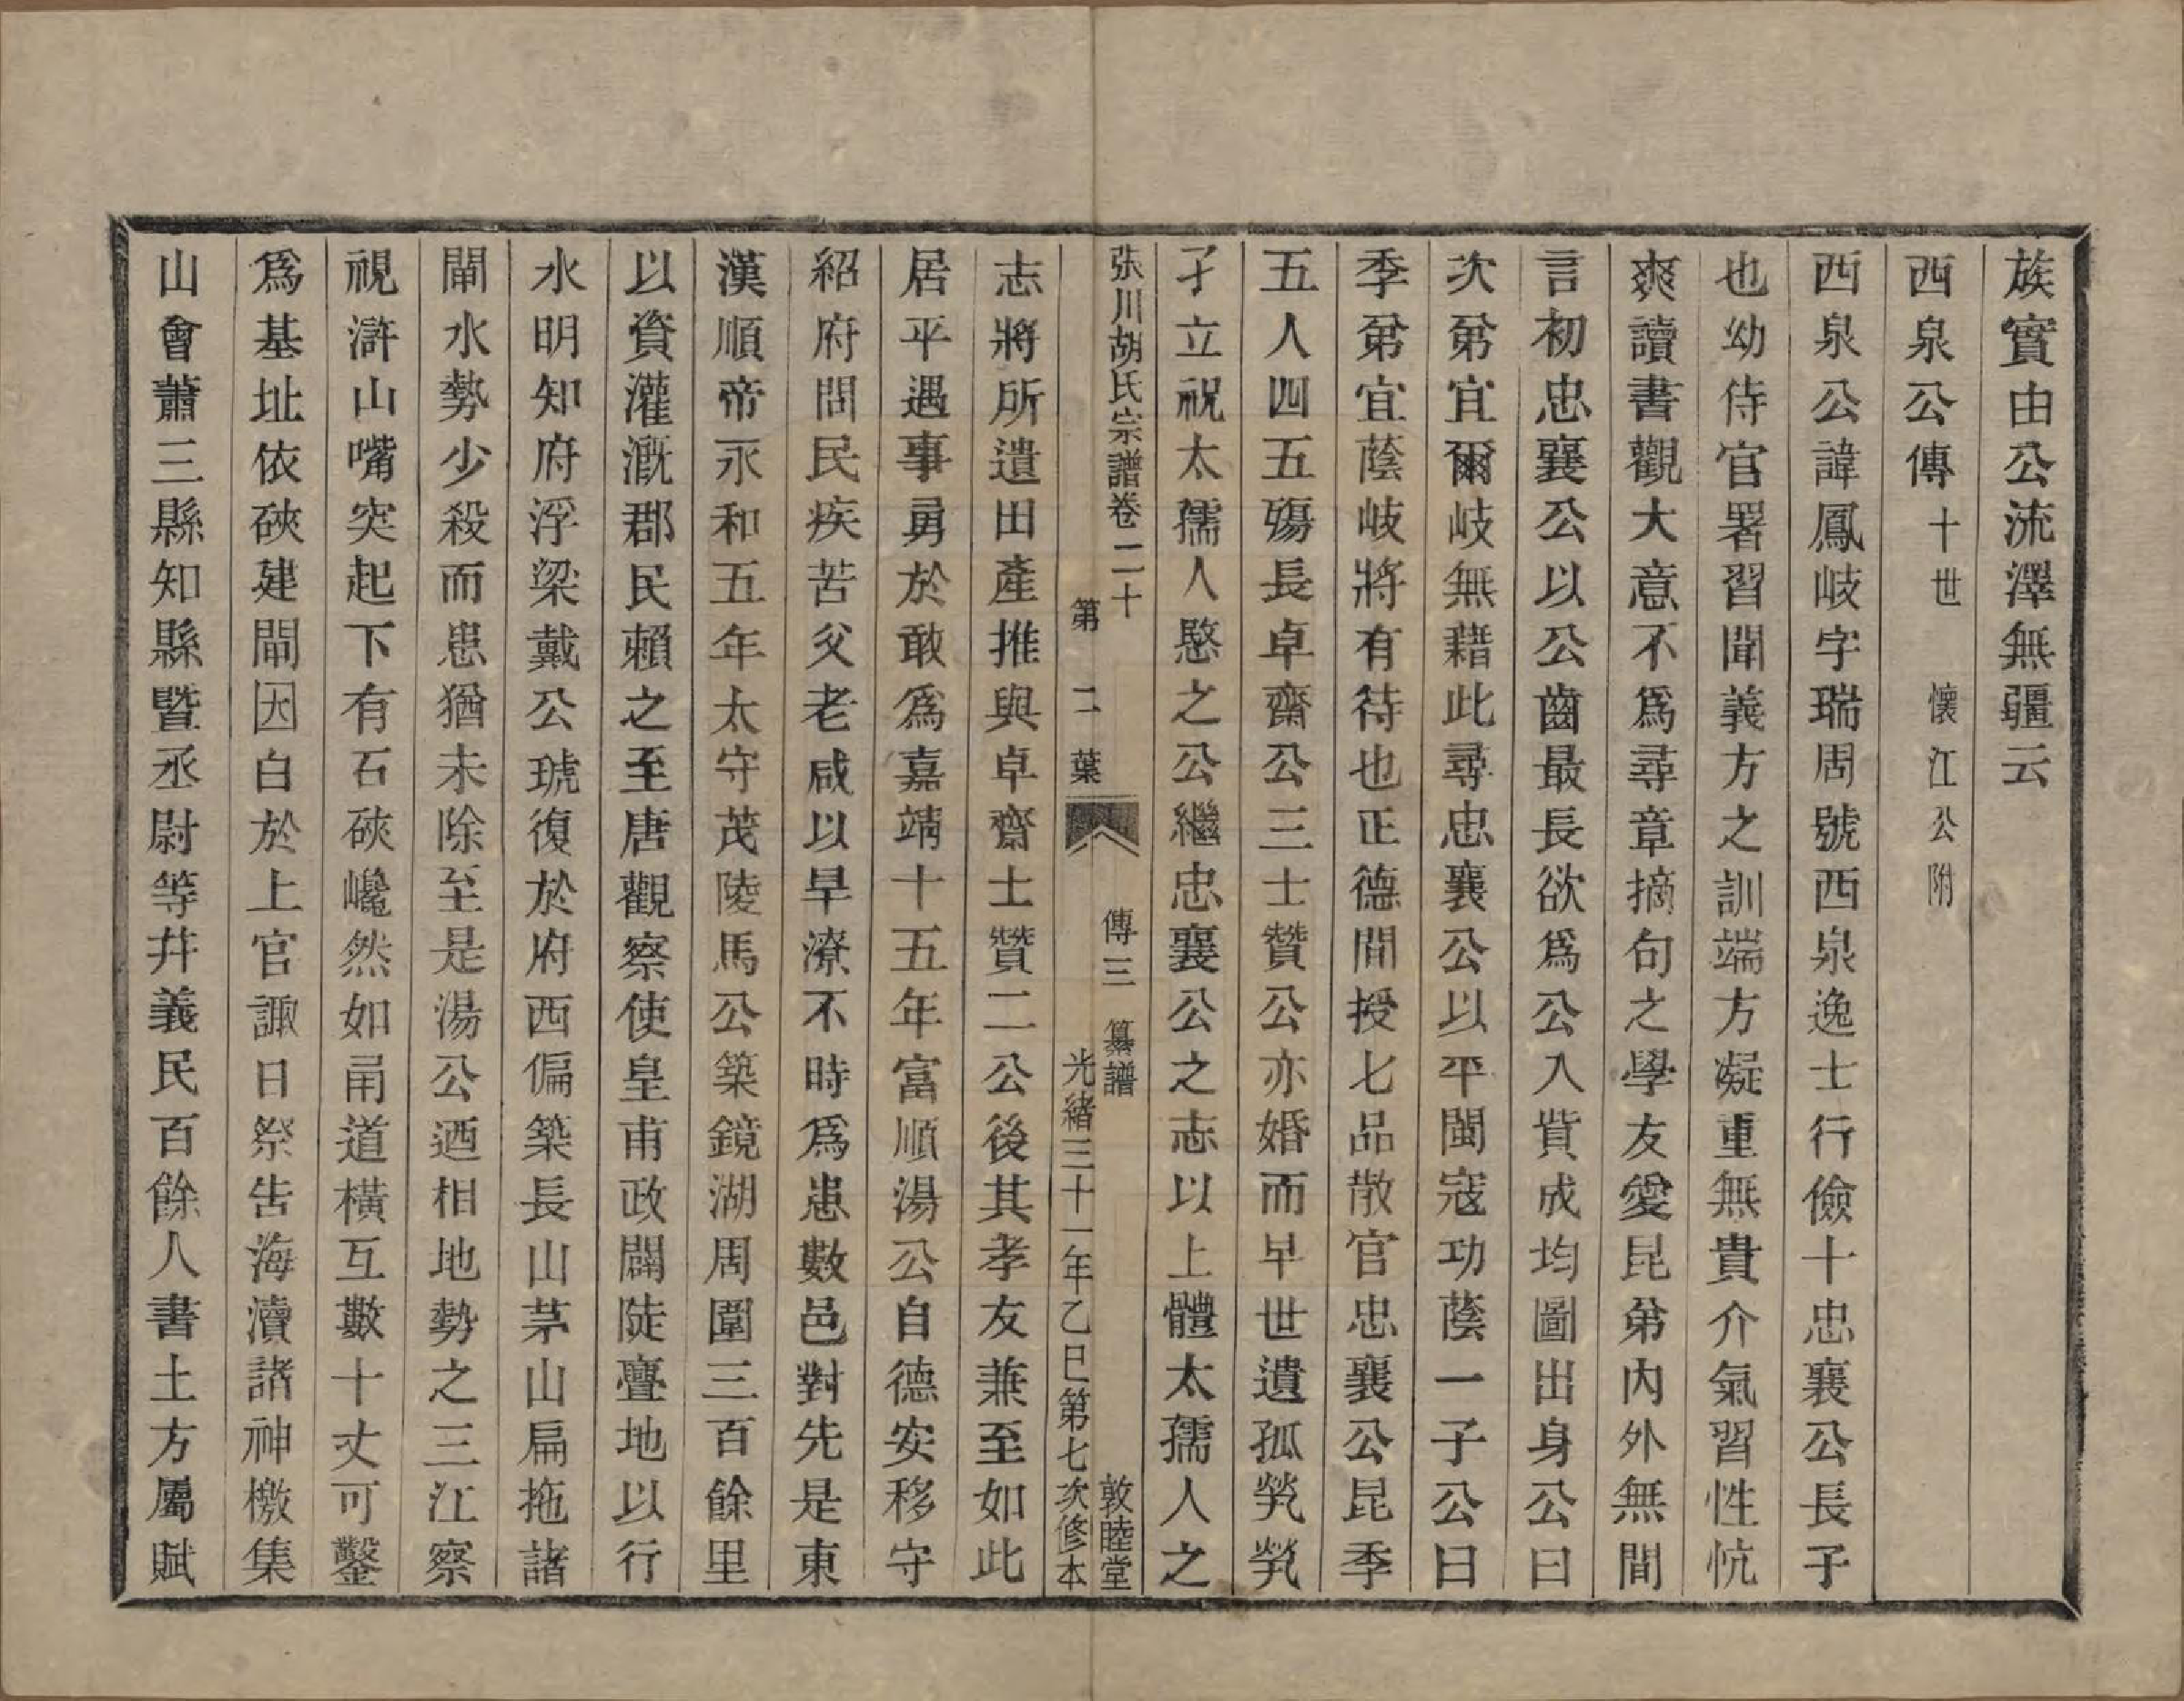 族實由公流澤無疆云
西泉公傳十世　懷江公附
西泉公諱鳳岐字瑞周號西泉逸士行儉十忠襄公長子
也幼侍官署習聞義方之訓端方凝重無貴介氣習性忼
爽讀書觀大意不爲尋章摘句之學友愛昆弟內外無間
言初忠襄公以公齒最長欲爲公入貲成均圖出身公曰
次弟宜爾岐無藉此尋忠襄公以平閩寇功蔭一子公曰
季弟宜蔭岐將有待也正德間授七品散官忠襄公昆季
五人四五殤長卓齋公三士贊公亦婚而早世遺孤煢煢
孑立祝太孺人愍之公繼忠襄公之志以上體太孺人之
張川胡氏宗譜卷二十　第二葉　傳三　纂譜　光緒三十一年乙巳第七次修本　敦睦堂
志將所遺田產推與卓齋士贊二公後其孝友兼至如此
居平遇事勇於敢爲嘉靖十五年富順湯公自德安移守
紹府問民疾苦父老咸以旱潦不時爲患數邑對先是東
漢順帝永和五年太守茂陵馬公築鏡湖周圍三百餘里
以資灌溉郡民賴之至唐觀察使皇甫政闢陡亹地以行
水明知府浮梁戴公琥復於府西偏築長山茅山扁拖諸
閘水勢少殺而患猶未除至是湯公迺相地勢之三江察
視滸山嘴突起下有石硤巉然如甬道橫互數十丈可鑿
爲基址依硤建閘因白於上官諏日祭告海瀆諸神檄集
山會蕭三縣知縣暨丞尉等幷義民百餘人書土方屬賦